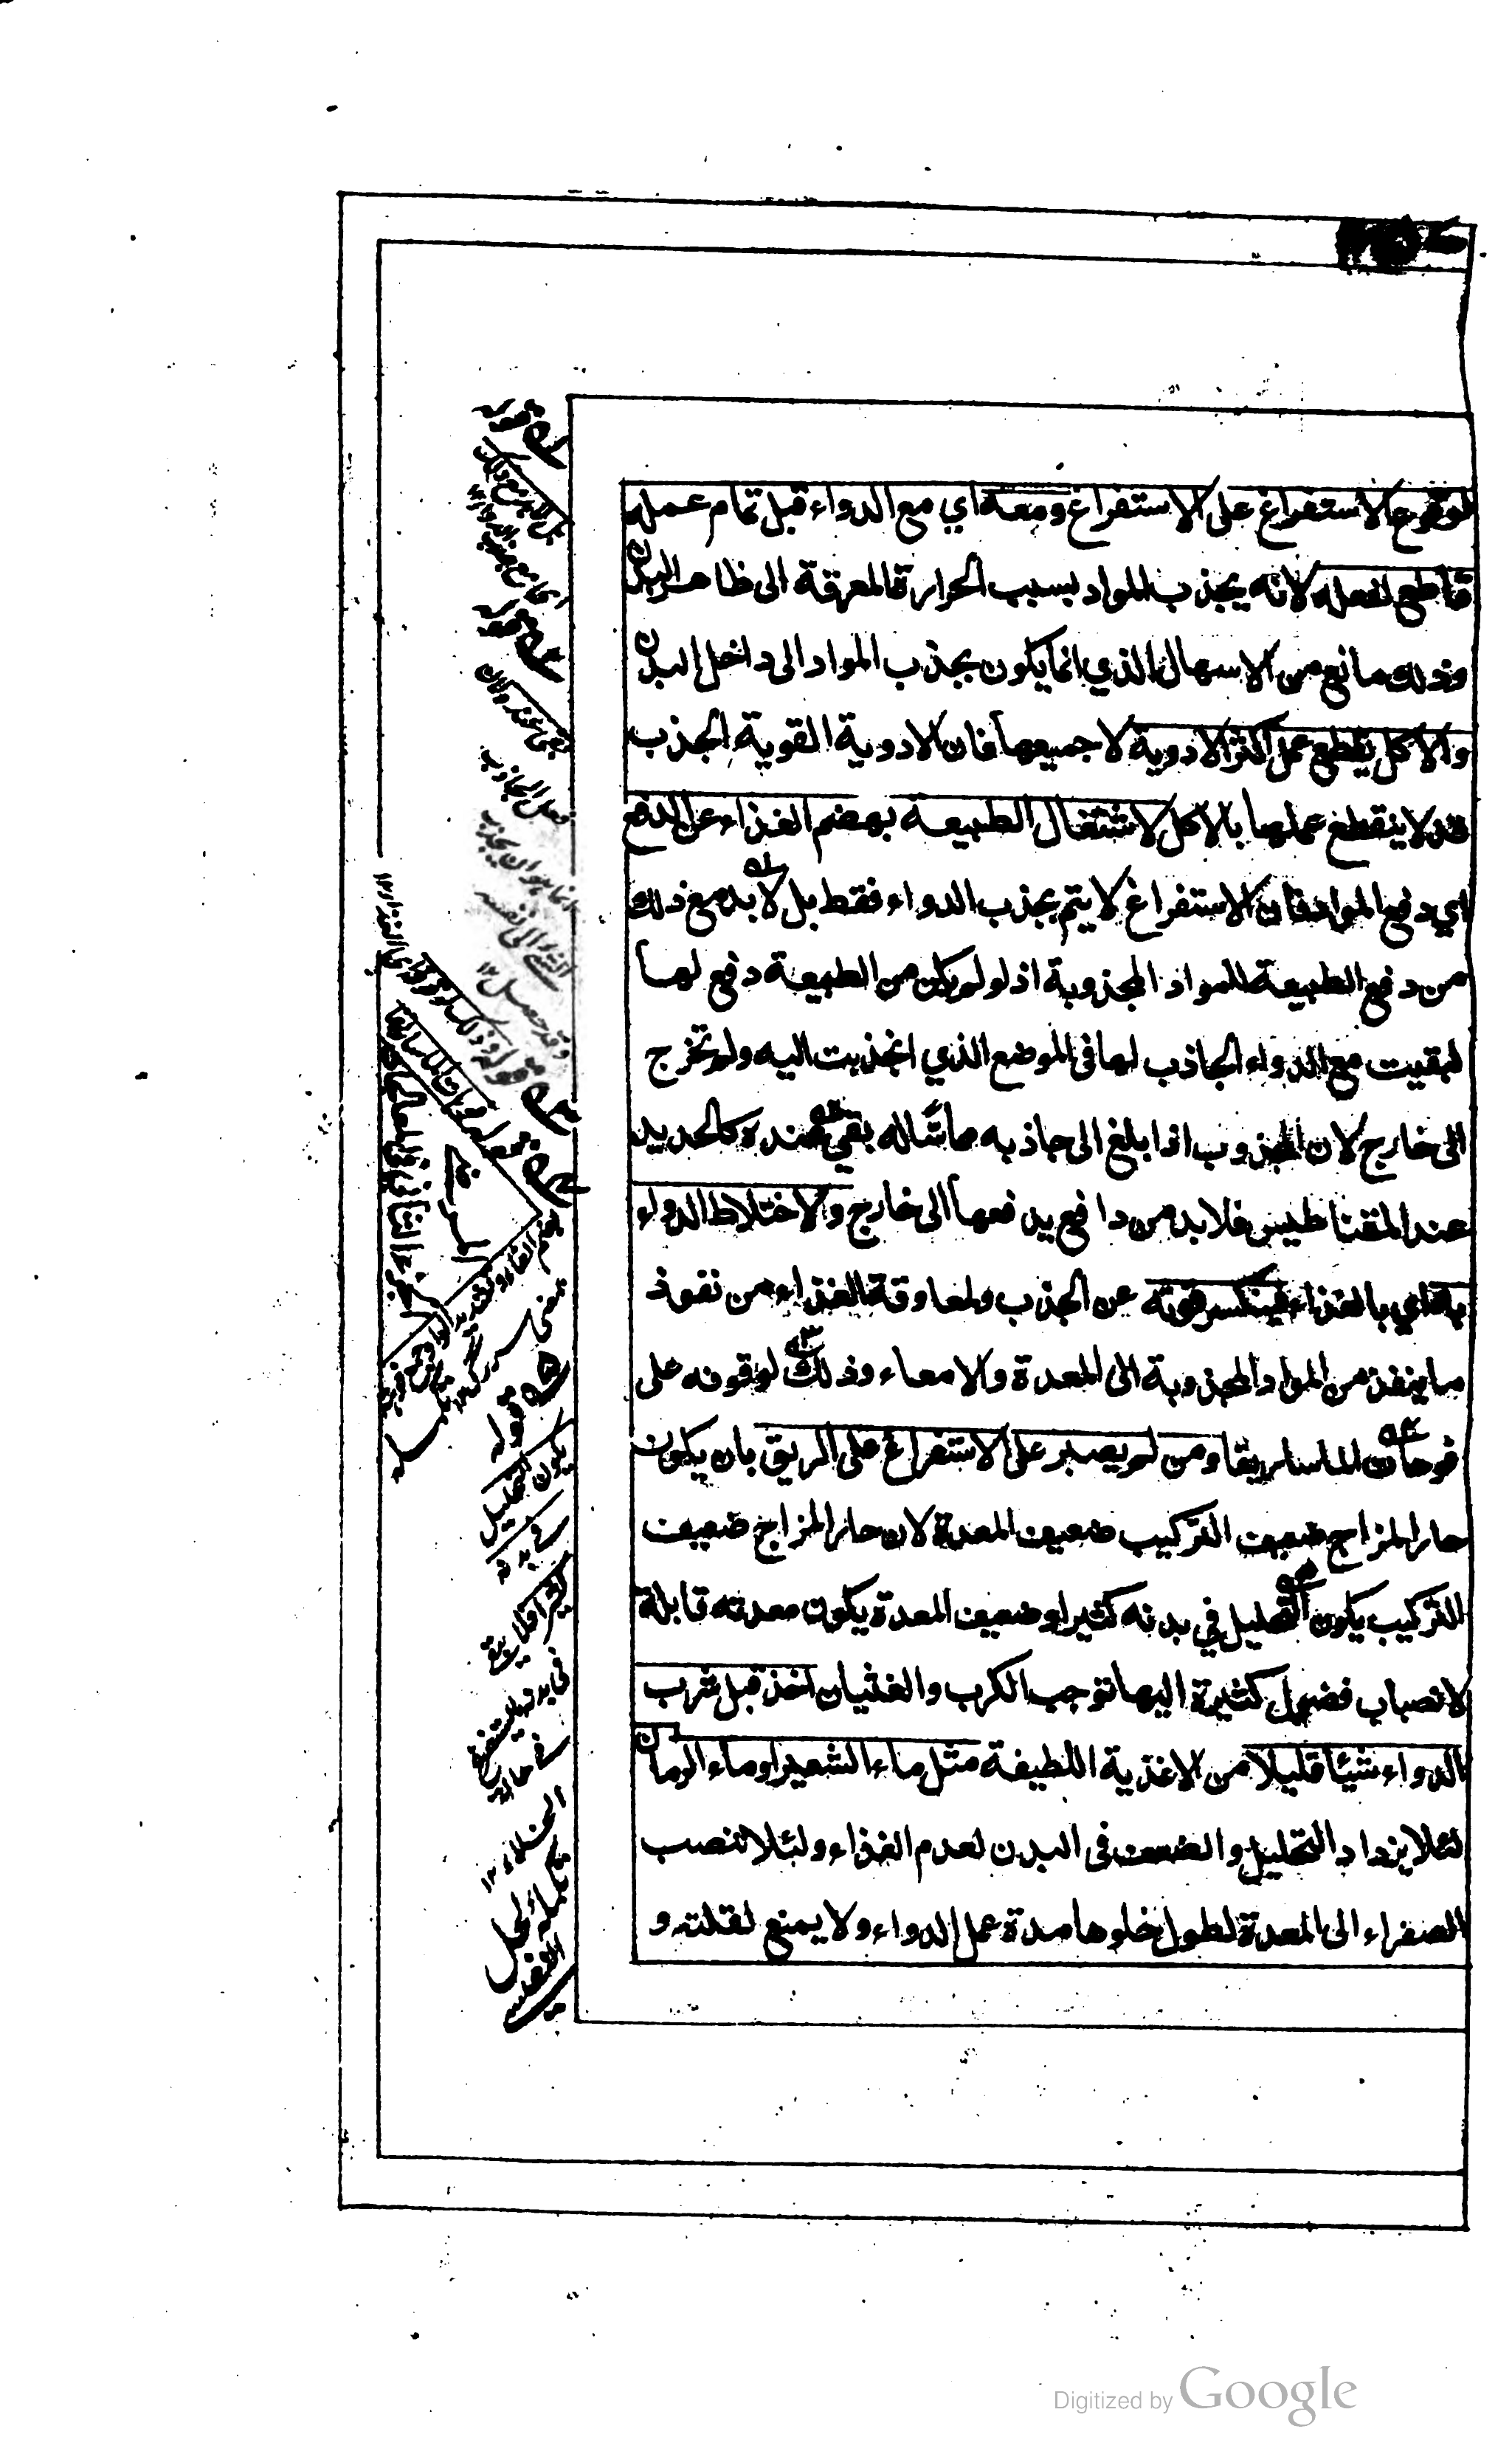 لوقوع الاستفراغ على الاستفراغ ومعه اي مع الدواء قبل تمام عمله
قاطع لفعله لانه يجذب المواد بسبب الحرارة المعرقة الى ظاهر البدن
وذلك مانع من الاسهال الذي انما يكون بجذب المواد الى داخل البدن
والاكل يقطع عمل اكثر الادوية لا جميعها فان الادوية القوية الجذب
قد لا ينقطع عملها بالاكل لاشتغال الطبيعة بهضم الغذاء عن الدفع
اي دفع المواد فان الاستفراغ لا يتم بجذب الدواء فقط بل لا بد مع ذلك
من دفع الطبيعة للمواد المجذوبة اذ لو لم يكن من الطبيعة دفع لها
لبقيت مع الدواء الجاذب لها فى الموضع الذي انجذبت اليه ولم تخرج
الى خارج لان المجذوب اذا بلغ الى جاذبه مماسّا له بقي عنده كالحديد
عند المقناطيس فلا بد من دافع يدفعها الى خارج ولاختلاط الدواء
به اي بالغذاء فينكسر قوته عن الجذب ولمعاوقة الغذاء من نفوذ
ما ينفذ من المواد المجذوبة الى المعدة والامعاء وذلك لوقوفه على
فوهات الماساريقا ومن لم يصبر على الاستفراغ على الريق بان يكون
حار المزاج ضعيف التركيب ضعيف المعدة لان حار المزاج ضعيف
التركيب يكون التحليل في بدنه كثيرا وضعيف المعدة يكون معدته قابلة
لانصباب فضول كثيرة اليها توجب الكرب والغثيان اخذ قبل شرب
الدواء شيئا قليلا من الاغذية اللطيفة مثل ماء الشعير او ماء الرمان
لئلا يزداد التحليل والضعف فى البدن لعدم الغذاء ولئلا تنصب
الصفراء الى المعدة لطول خلوها مدة عمل الدواء ولا يمنع لقلته و
قوله
بل لا بد مع ذلك
قوله
بقي عنده وذلك
فعل الجاذب
انما هو ان يجذب
الشيء الى نفسه
وقد حصل ١٢
قوله وذلك لوقوفه اى الغذاء ١٢
قوله فوهات الماساريقا
قوله
يكون التحليل
في بدنه
كثيرا
Digitized by Google